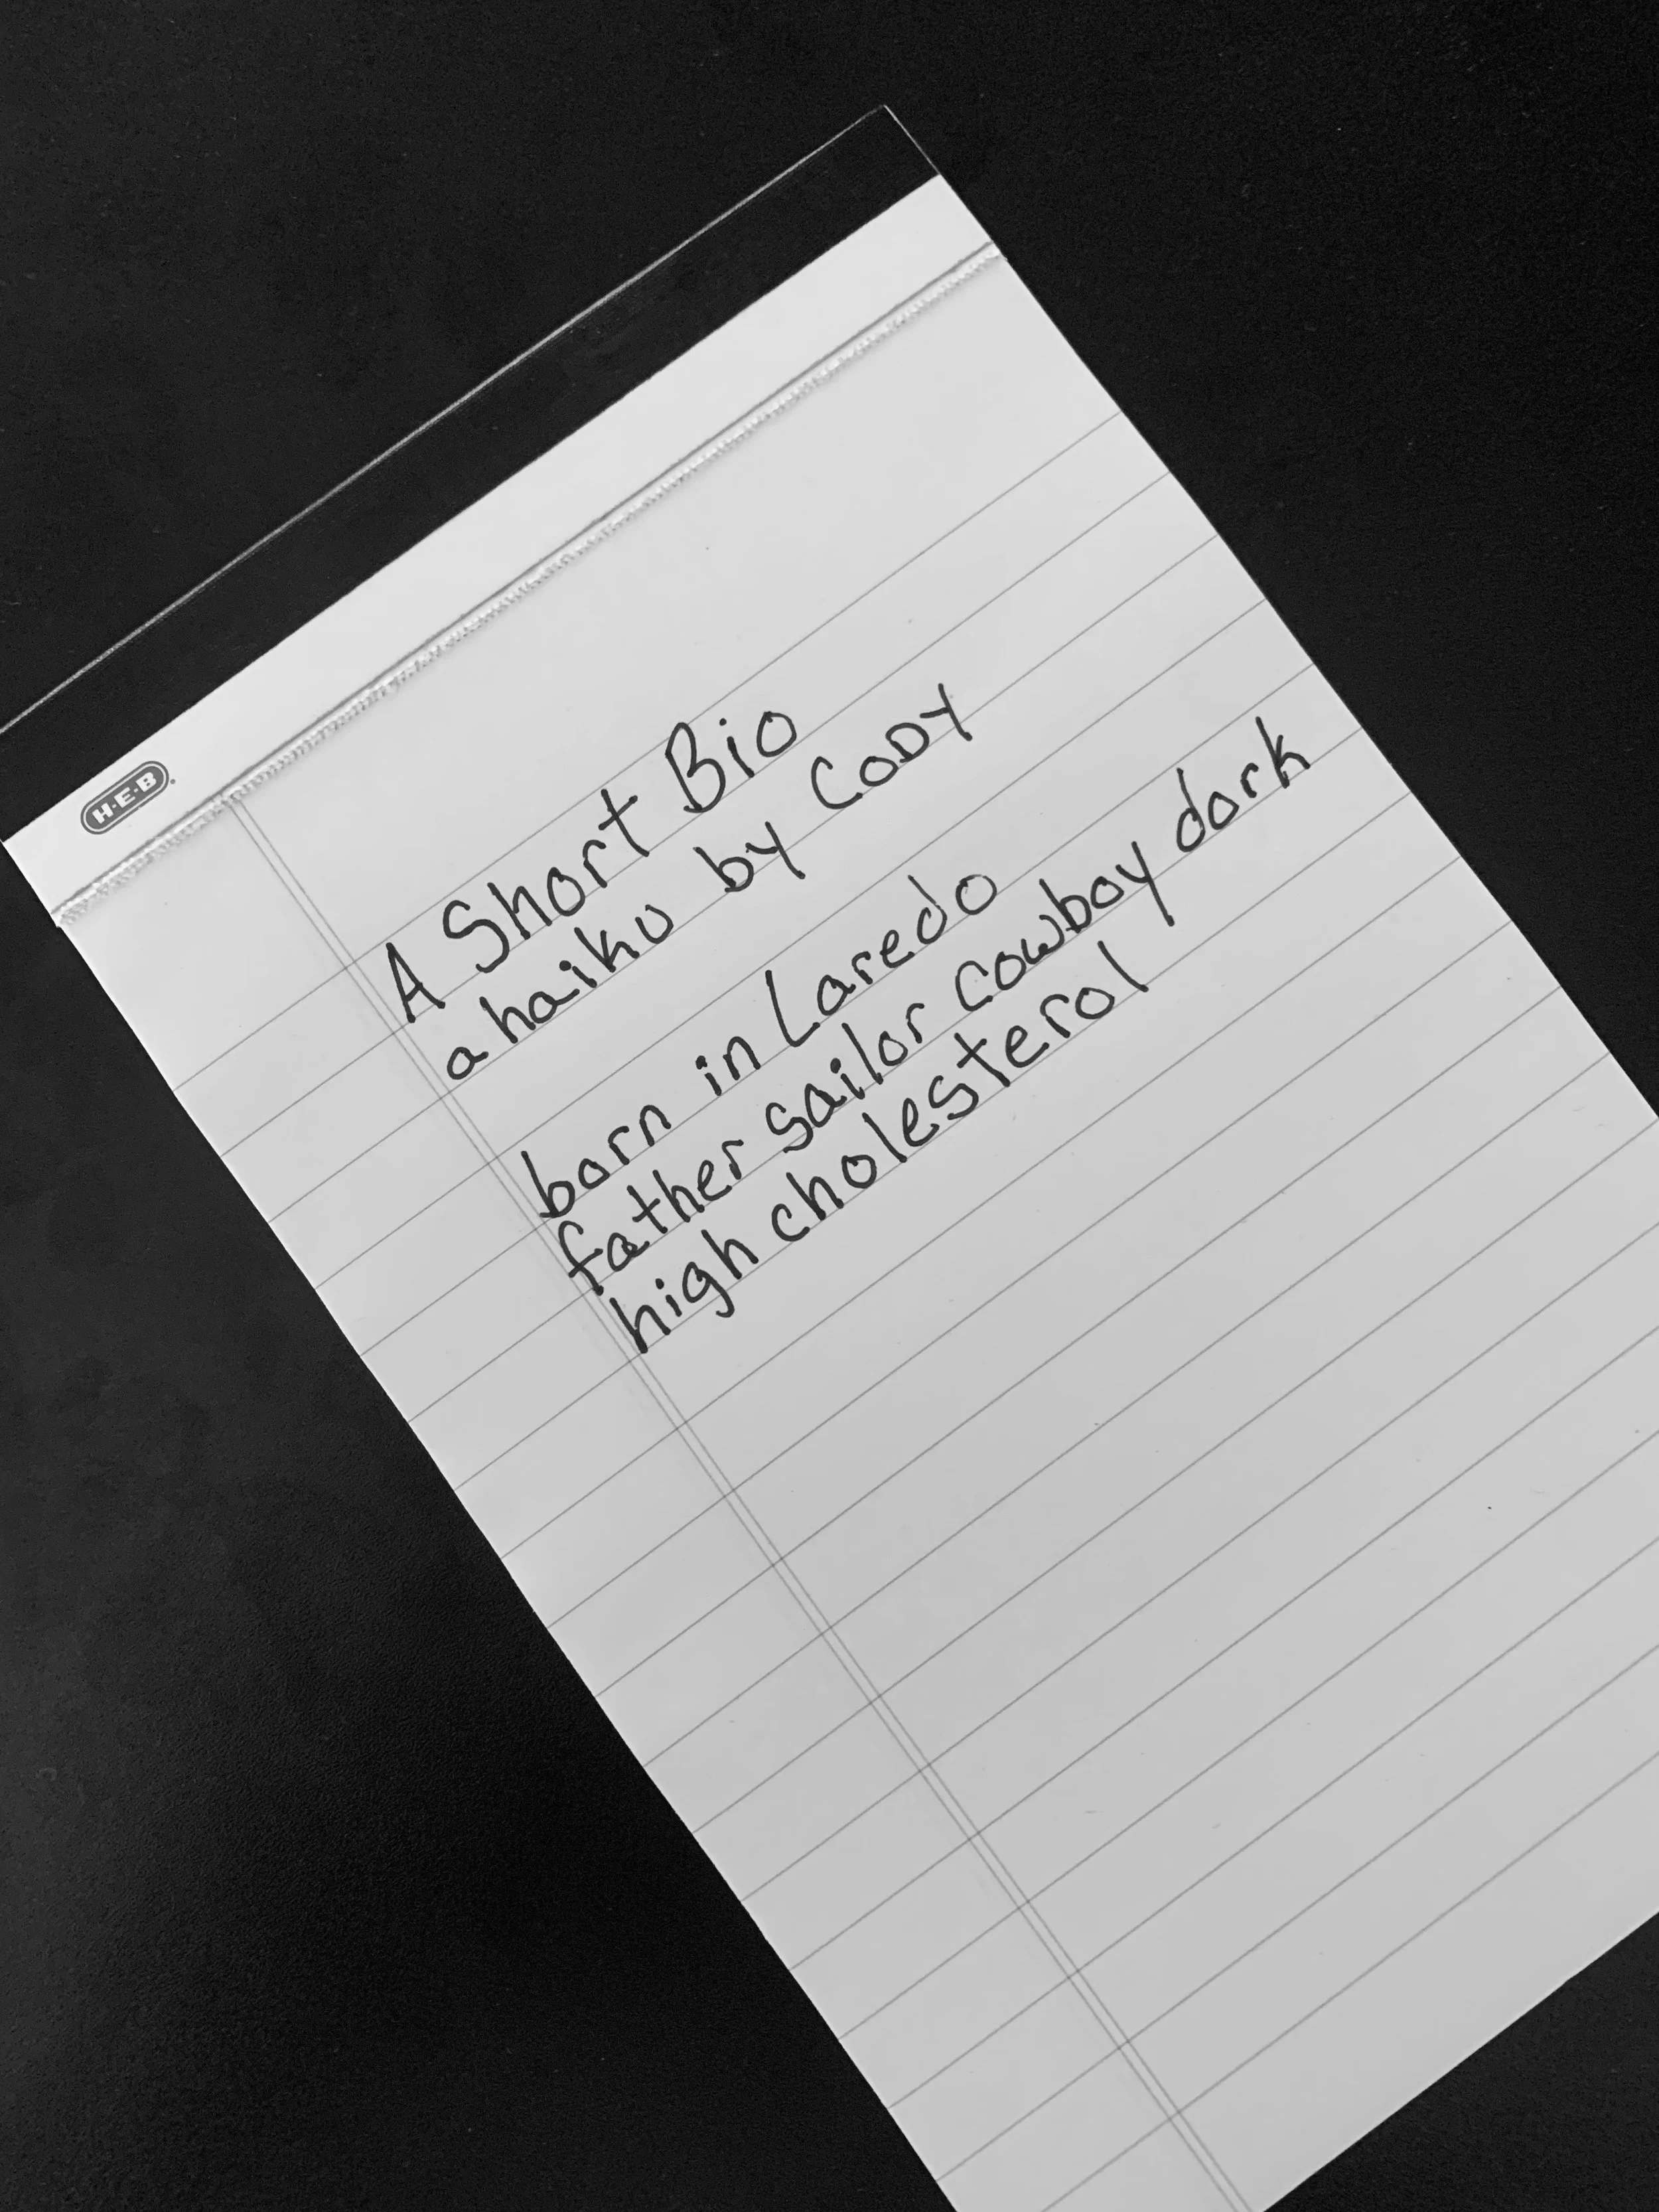 H-E-B
A Short Bio
a haiku by CODY
born in Laredo
father sailor cowboy dork
high cholesterol